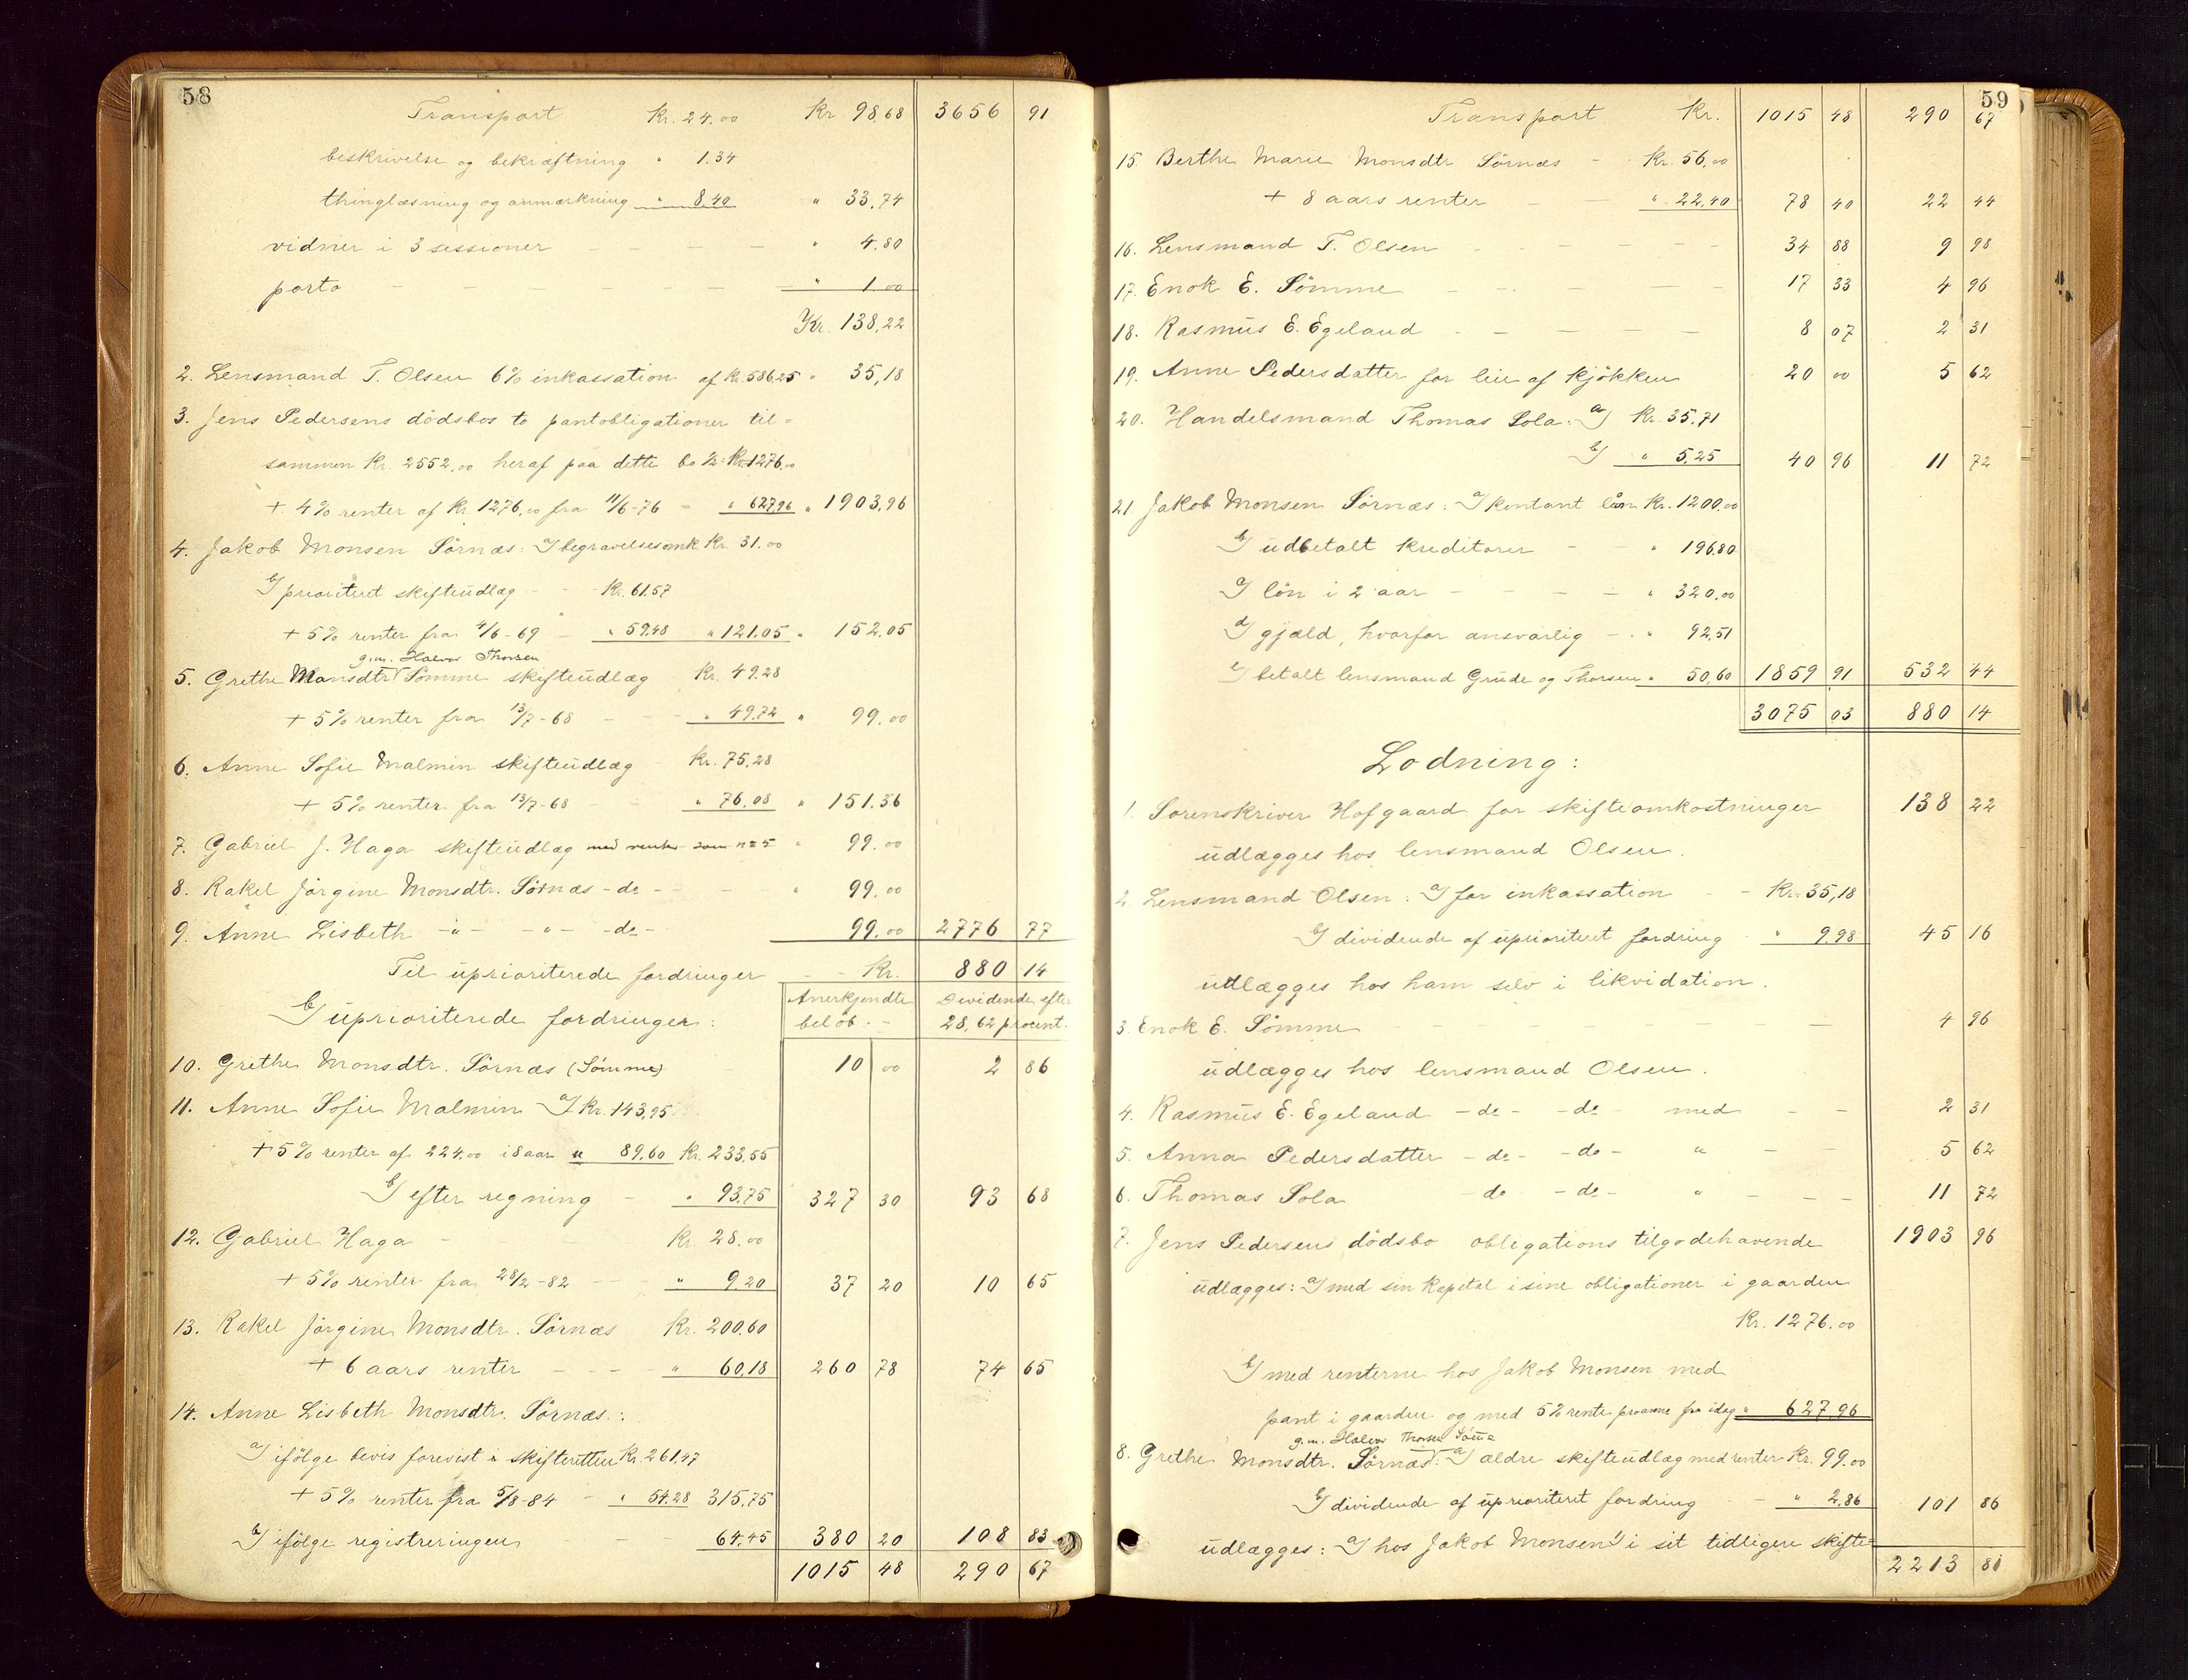 58
Transport Kr. 24.00 Kr. 98,68 3656 91
beskrivelse og bekræftning " 1.34
thinglæsning og anmærkning " 8,40 " 33,74
vidner i 3 sessioner " 4.80
porto " 1.00
Kr. 138,22
2. Lensmand T. Olsen 6% inkassation af Kr. 586,25 " 35,18
3. Jens Pedersens dödsbos to pantobligationer til-
sammen Kr. 2552,00 heraf paa dette bo ½ = Kr. 1276,00
+ 4% renter af Kr. 1276,00 fra 11/6-76 - " 627,96 " 1903,96
4. Jakob Monsen Sörnæs: a) begravelsesomk Kr. 31.00
b) prioriteret skifteudlæg - Kr. 61.57
+ 5% renter fra 4/6-69 - " 59,48 " 121.05 " 152.05
g.m. Halvor Thorsen
5. Grethe Monsdtr Sömme skifteudlæg Kr. 49.28
+ 5% renter fra 13/7-68 - " 49,72 " 99.00
6. Anne Sofie Malmin skifteudlæg Kr. 75,28
+ 5% renter fra 13/7-68 " 76.08 " 151.36
7. Gabriel J. Haga skifteudlæg med renter som no 5 " 99.00
8. Rakel Jörgine Monsdtr. Sörnæs - do - " 99.00
9. Anne Lisbeth - " - - " - - do - 99.00 2776 77
Til uprioriterede fordringer - - Kr. 880 14
b) uprioriterede fordringer: Anerkjendte belöb. - Dividende efter 28,62 procent.
10. Grethe Monsdtr. Sörnæs (Sömme) 10 00 2 86
11. Anne Sofie Malmin a) Kr. 143,95
+ 5% renter af 224.00 i 8 aar " 89,60 Kr. 233,55
b) efter regning - " 93,75 327 30 93 68
12. Gabriel Haga - Kr. 28.00
+ 5% renter fra 28/2-82 - " 9.20 37 20 10 65
13. Rakel Jörgine Monsdtr. Sörnæs Kr. 200,60
+ 6 aars renter - - - " 60,18 260 78 74 65
14. Anne Lisbeth Monsdtr. Sörnæs:
a) ifölge bevis forevist i skifteretten Kr. 261,47
+ 5% renter fra 5/8-84 - " 54.28 315,75
b) ifölge registreringen 64,45 380 20 108 83
1015 48 290 67
59
Transport Kr. 1015 48 290 67
15. Berthe Marie Monsdtr Sörnæs - Kr. 56,00
+ 8 aars renter - - " 22,40 78 40 22 44
16. Lensmand T. Olsen - - - - - - 34 88 9 98
17. Enok E. Sömme - - - - - 17 33 4 96
18. Rasmus E. Egeland - - - - - 8 07 2 31
19. Anne Pedersdatter for leie af kjökken 20 00 5 62
20. Handelsmand Thomas Sola: a) Kr. 35,71
b) " 5,25 40 96 11 72
21. Jakob Monsen Sörnæs: a) kontant lån Kr. 1200,00
b) udbetalt kreditorer - - " 196,80
c) lön i 2 aar - - - - " 320,00
d) gjæld, hvorfor ansvarlig - " 92,51
e) betalt lensmand Grude og Thorsen " 50,60 1859 91 532 44
3075 03 880 14
Lodning:
1. Sorenskriver Hofgaard for skifteomkostninger 138 22
udlægges hos lensmand Olsen.
2. Lensmand Olsen: a) for inkassation - - Kr. 35,18
b) dividende af uprioriteret fordring - " 9.98 45 16
udlægges hos ham selv i likvidation.
3. Enok E. Sömme - - - - - - 4 96
udlægges hos lensmand Olsen.
4. Rasmus E. Egeland - do - - do - med - - 2 31
5. Anna Pedersdatter - do - - do - " - - 5 62
6. Thomas Sola - do - do - " - - - 11 72
7. Jens Pedersens dödsbo obligations tilgodehavende 1903 96
udlægges: a) med sin kapital i sine obligationer i gaarden
Kr. 1276.00
b) med renterne hos Jakob Monsen med
pant i gaarden og med 5% rente pro anno fra idag " 627,96
g.m. Halvor Thorsen Sömme
8. Grethe Monsdtr. Sörnæs: a) ældre skifteudlæg med renter Kr. 99.00
b) dividende af uprioriteret fordring - " 2,86 101 86
udlægges: a) hos Jakob Monsen 1) i sit tidligere skifte-
2213 81